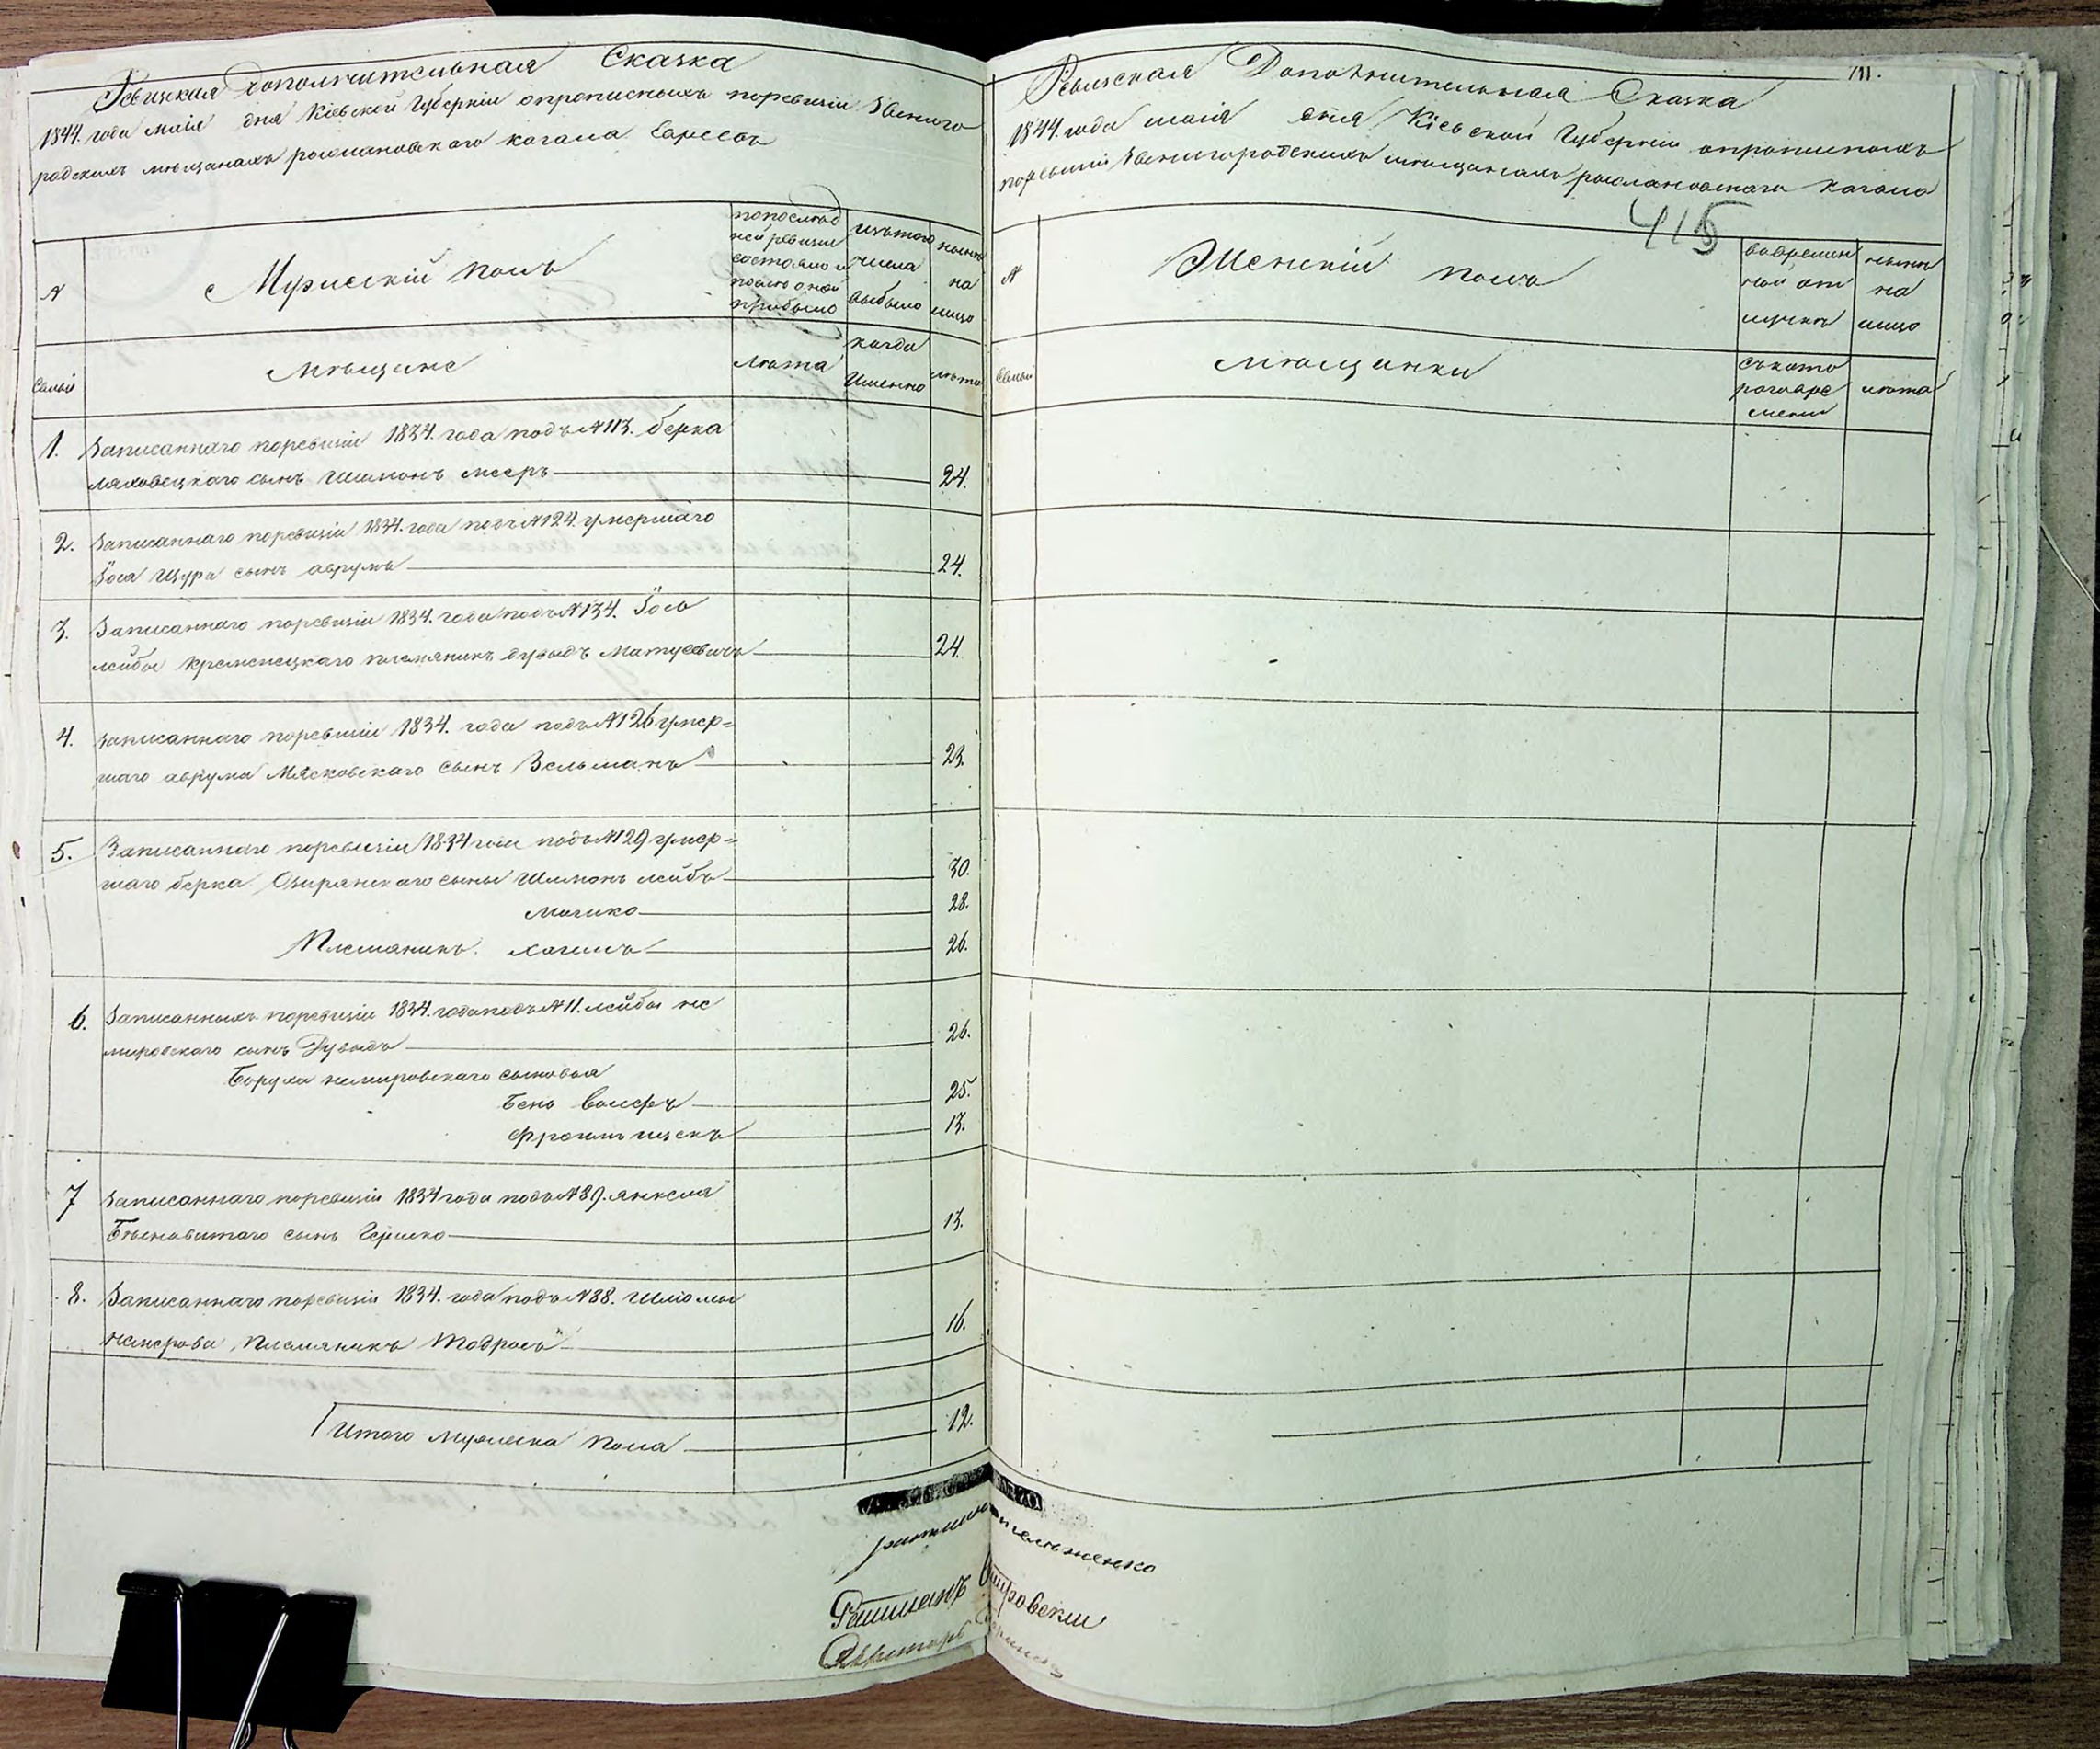 Ревизская Дополнительная Сказка
1844. года маія дня Кіевской Губерніи опрописныхъ поревизіи Звениго
родскихъ мѣщанахъ романовского кагала Евреевъ
N
Мужескій полъ
попослѣд
ней ревизіи
состояло и
после оной
прибыло
изътого
числа
выбыло
нынѣ
на
лицо
Семьи
Мѣщане
лѣта
когда
Именно
лѣта
1. Записаннаго поревизіи 1834. года подъ N 113. берка
ляховецкаго сынъ Шимонъ мееръ 24.
2. Записаннаго поревизіи 1834. года подъ N 124. умершаго
Іося Щура сынъ аврумъ 24.
3. Записаннаго поревизіи 1834. года подъ N 134. Іось
лейбы Кременецкаго племяникъ дувыдъ Матусевичъ 24.
4. Записаннаго поревизіи 1834. года подъ N 126 умер=
шаго аврума Мясковского сынъ Зельманъ 23.
5. Записаннаго поревизіи 1834 года подъ N 129 умер=
шаго берка Озирянскаго сыны Шимонъ лейбъ 30.
Мошко 28.
Племяникъ. хаимъ 26.
6. Записанныхъ поревизіи 1834. года подъ N 11. лейбы не
мировского сынъ Дувыдъ 26.
Боруха немировского сыновья
Бень вольфъ 25.
Фроимъ ицекъ 13.
7 Записаннаго поревизіи 1834 года подъ N 89. янкеля
сынъ Гершко 13.
8. Записаннаго поревизіи 1834. года подъ N 88. Шліомы
племяникъ Тодросъ 16.
Итого мужеска пола 12.
111.
Ревизская Дополнительная Сказка
1844. года маія дня Кіевской Губерніи опрописныхъ
поревизіи Звенигородскихъ мѣщанахъ романовскаго кагала
415
N
Женскій полъ
вовремен
ной от
лучкѣ
нынѣ
на
лицо
Семьи
мѣщинки
съкото
раговре
мени
лѣта
Ратманъ
Секретарь